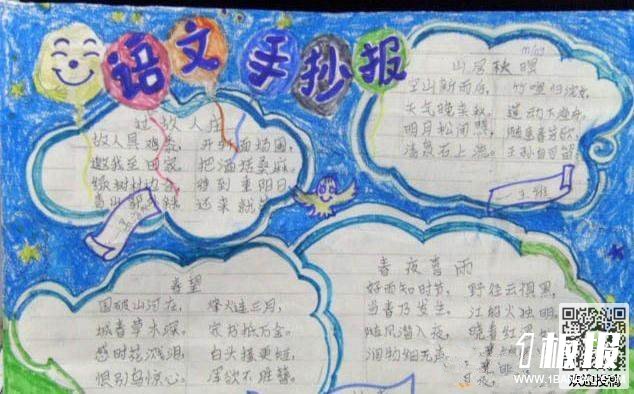 语文手抄报
过故人庄
故人具鸡 开轩面场圃,
邀我至田家 把酒话桑麻。
绿树村边 待到重阳日,
还来就
山居秋暝
空山新雨后, 竹喧归浣女,
天气晚来秋。 莲动下渔舟。
明月松间照, 随意春芳歇,
清泉石上流。 王孙自可留。
—王维
春望
国破山河在, 烽火连三月,
城春草木深。 家书抵万金。
感时花溅泪, 白头搔更短,
恨别鸟惊心。 浑欲不胜簪。
春夜喜雨
好雨知时节, 野径云俱黑,
当春乃发生。 江船火独明。
随风潜入夜, 晓看红
润物细无声
1板报
WWW.1BANBAO.COM